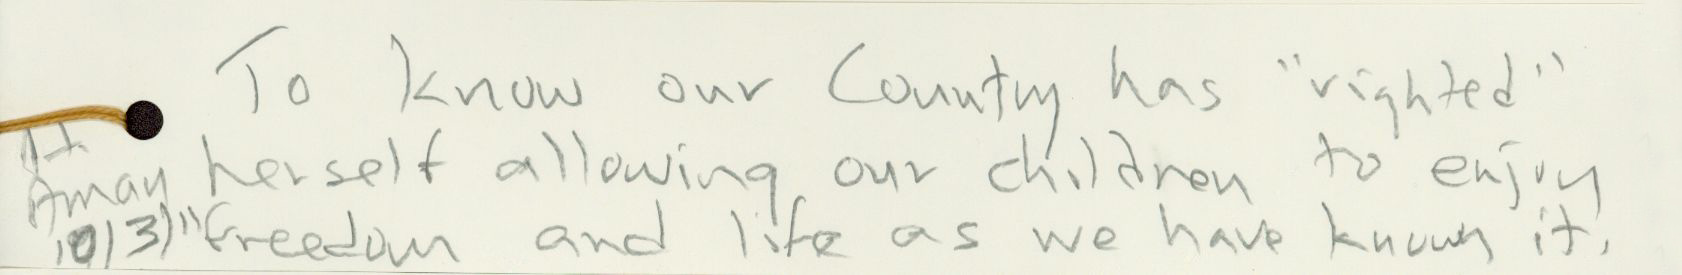 To know our Country has "righted"
herself allowing our children to enjoy
"freedom and life as we have known it.